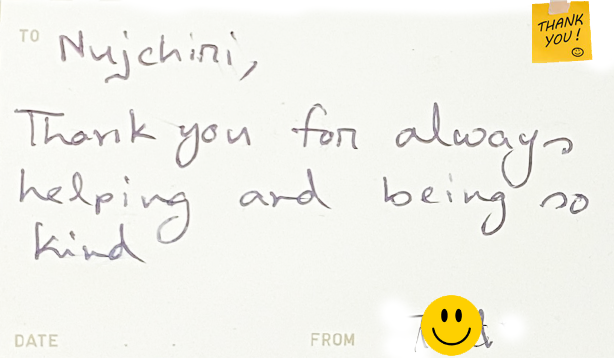 TO Nujchiri,
THANK
YOU!
Thank you for always
helping and being so
kind
DATE
FROM